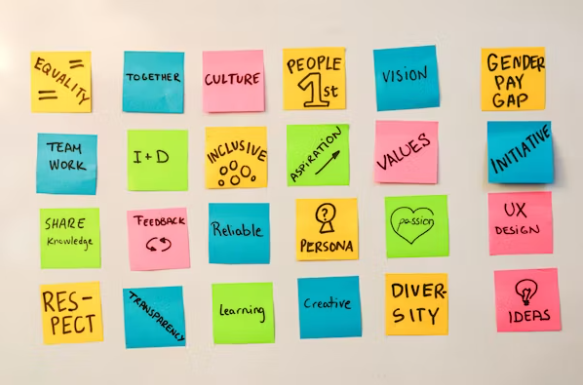 EQUALITY
TOGETHER
CULTURE
PEOPLE
1st
VISION
GENDER
PAY
GAP
TEAM
WORK
I+D
INCLUSIVE
ASPIRATION
VALUES
INITIATIVE
SHARE
Knowledge
FEEDBACK
Reliable
?
PERSONA
passion
UX
DESIGN
RES-
PECT
TRANSPARENCY
Learning
Creative
DIVER-
SITY
IDEAS